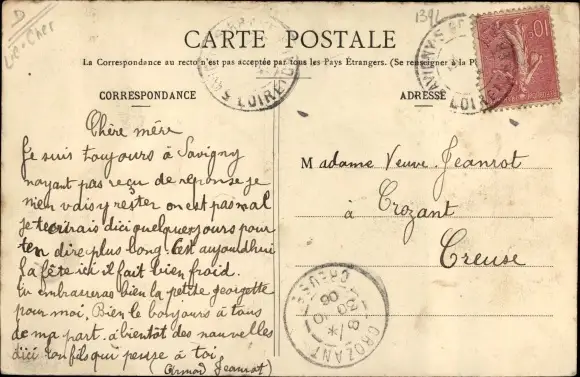 D
L.-et-Cher
1396
CARTE POSTALE
La Correspondance au recto n'est pas acceptée par tous les Pays Étrangers. (Se renseigner à la P
CORRESPONDANCE
ADRESSE
LOIR-ET-
SAVIGNY-S-
LOIR-
10
Chère mère
Je suis toujours à Savigny
nayant pas reçu de réponse je
mien vais y rester on est pas mal
je tecrirais dici quelque jours pour
ten dire plus long. C'est aujoudhui
la fête ici il fait bien froid.
tu embrasseras bien la petite georgette
pour moi. Bien le bonjours à tous
de ma part. à bientôt des nouvelles
dici ton fils qui pense à toi
(Armand Jeanrot)
Madame Veuve Jeanrot
à Crozant
Creuse
CROZANT
CREUSE
8 /*
30 -10
06